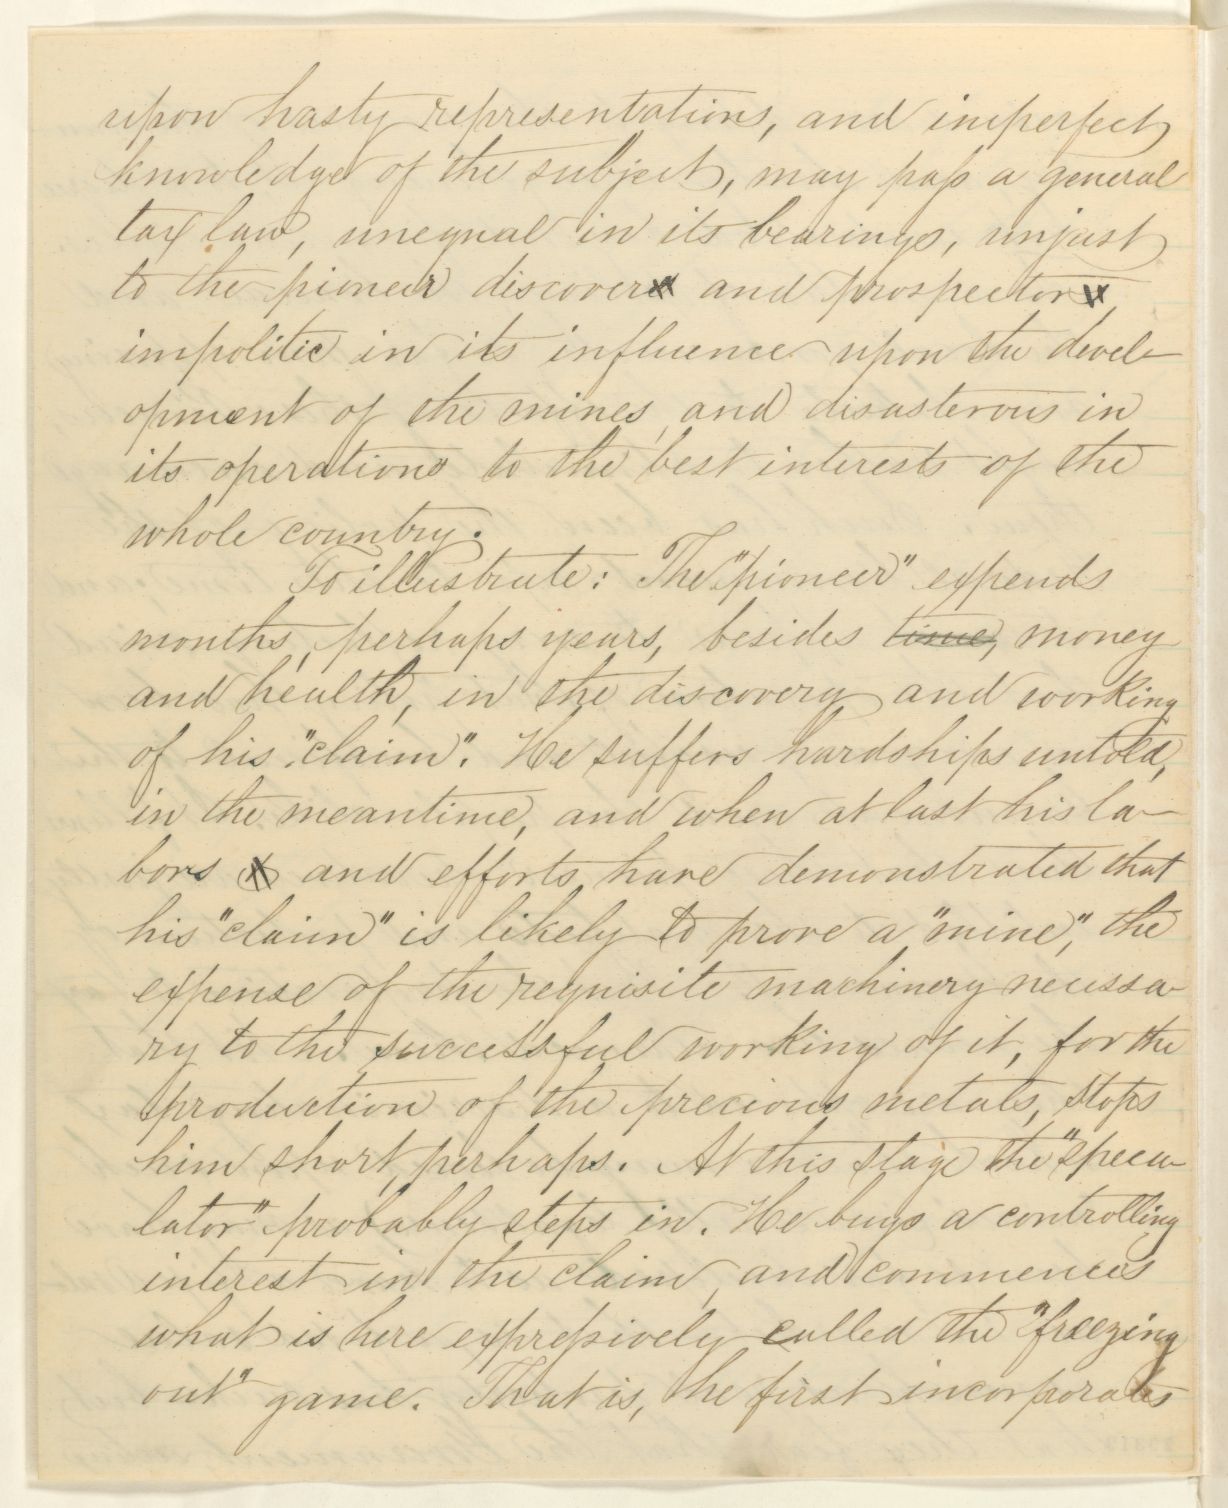 upon hasty representations, and imperfect
knowledge of the subject, may pass a general
tax law, unequal in its bearings, unjust
to the pioneer discoverer and prospector,
impolitic in its influence upon the devel-
opment of the mines, and disasterous in
its operations to the best interests of the
whole country.
To illustrate: The "pioneer" expends
months, perhaps years, besides time, money
and health, in the discovery and working
of his "claim". He suffers hardships untold,
in the meantime, and when at last his la-
bors and efforts have demonstrated that
his "claim" is likely to prove a "mine", the
expense of the requisite machinery necessa-
ry to the successful working of it, for the
production of the precious metals, stops
him short, perhaps. At this stage the "specu-
lator" probably steps in. He buys a controlling
interest in the claim, and commences
what is here expressively called the "freezing
out" game. That is, he first incorporates